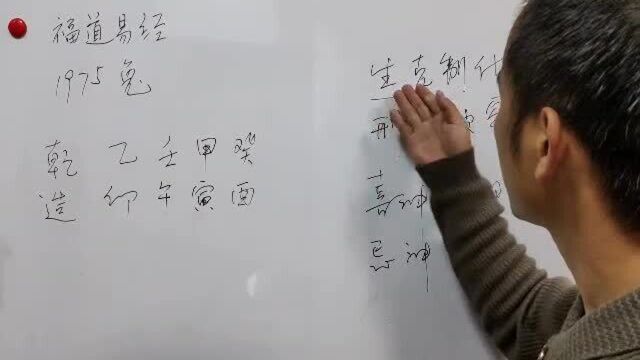 福道易经
1975兔
乾 乙 壬 甲 癸
造 卯 午 寅 酉
生克制化
喜神
忌神